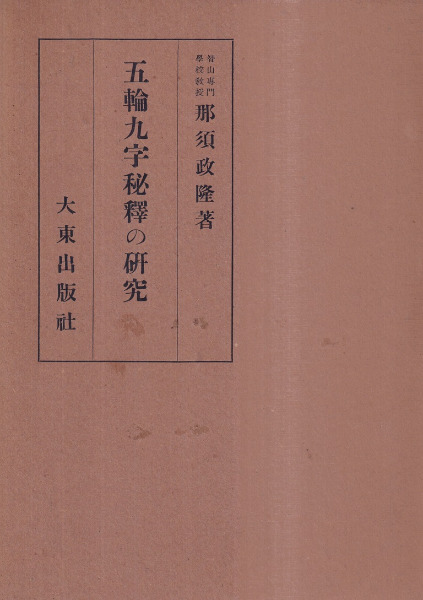 智山專門
學校敎授
那須政隆著
五輪九字秘釋の硏究
大東出版社